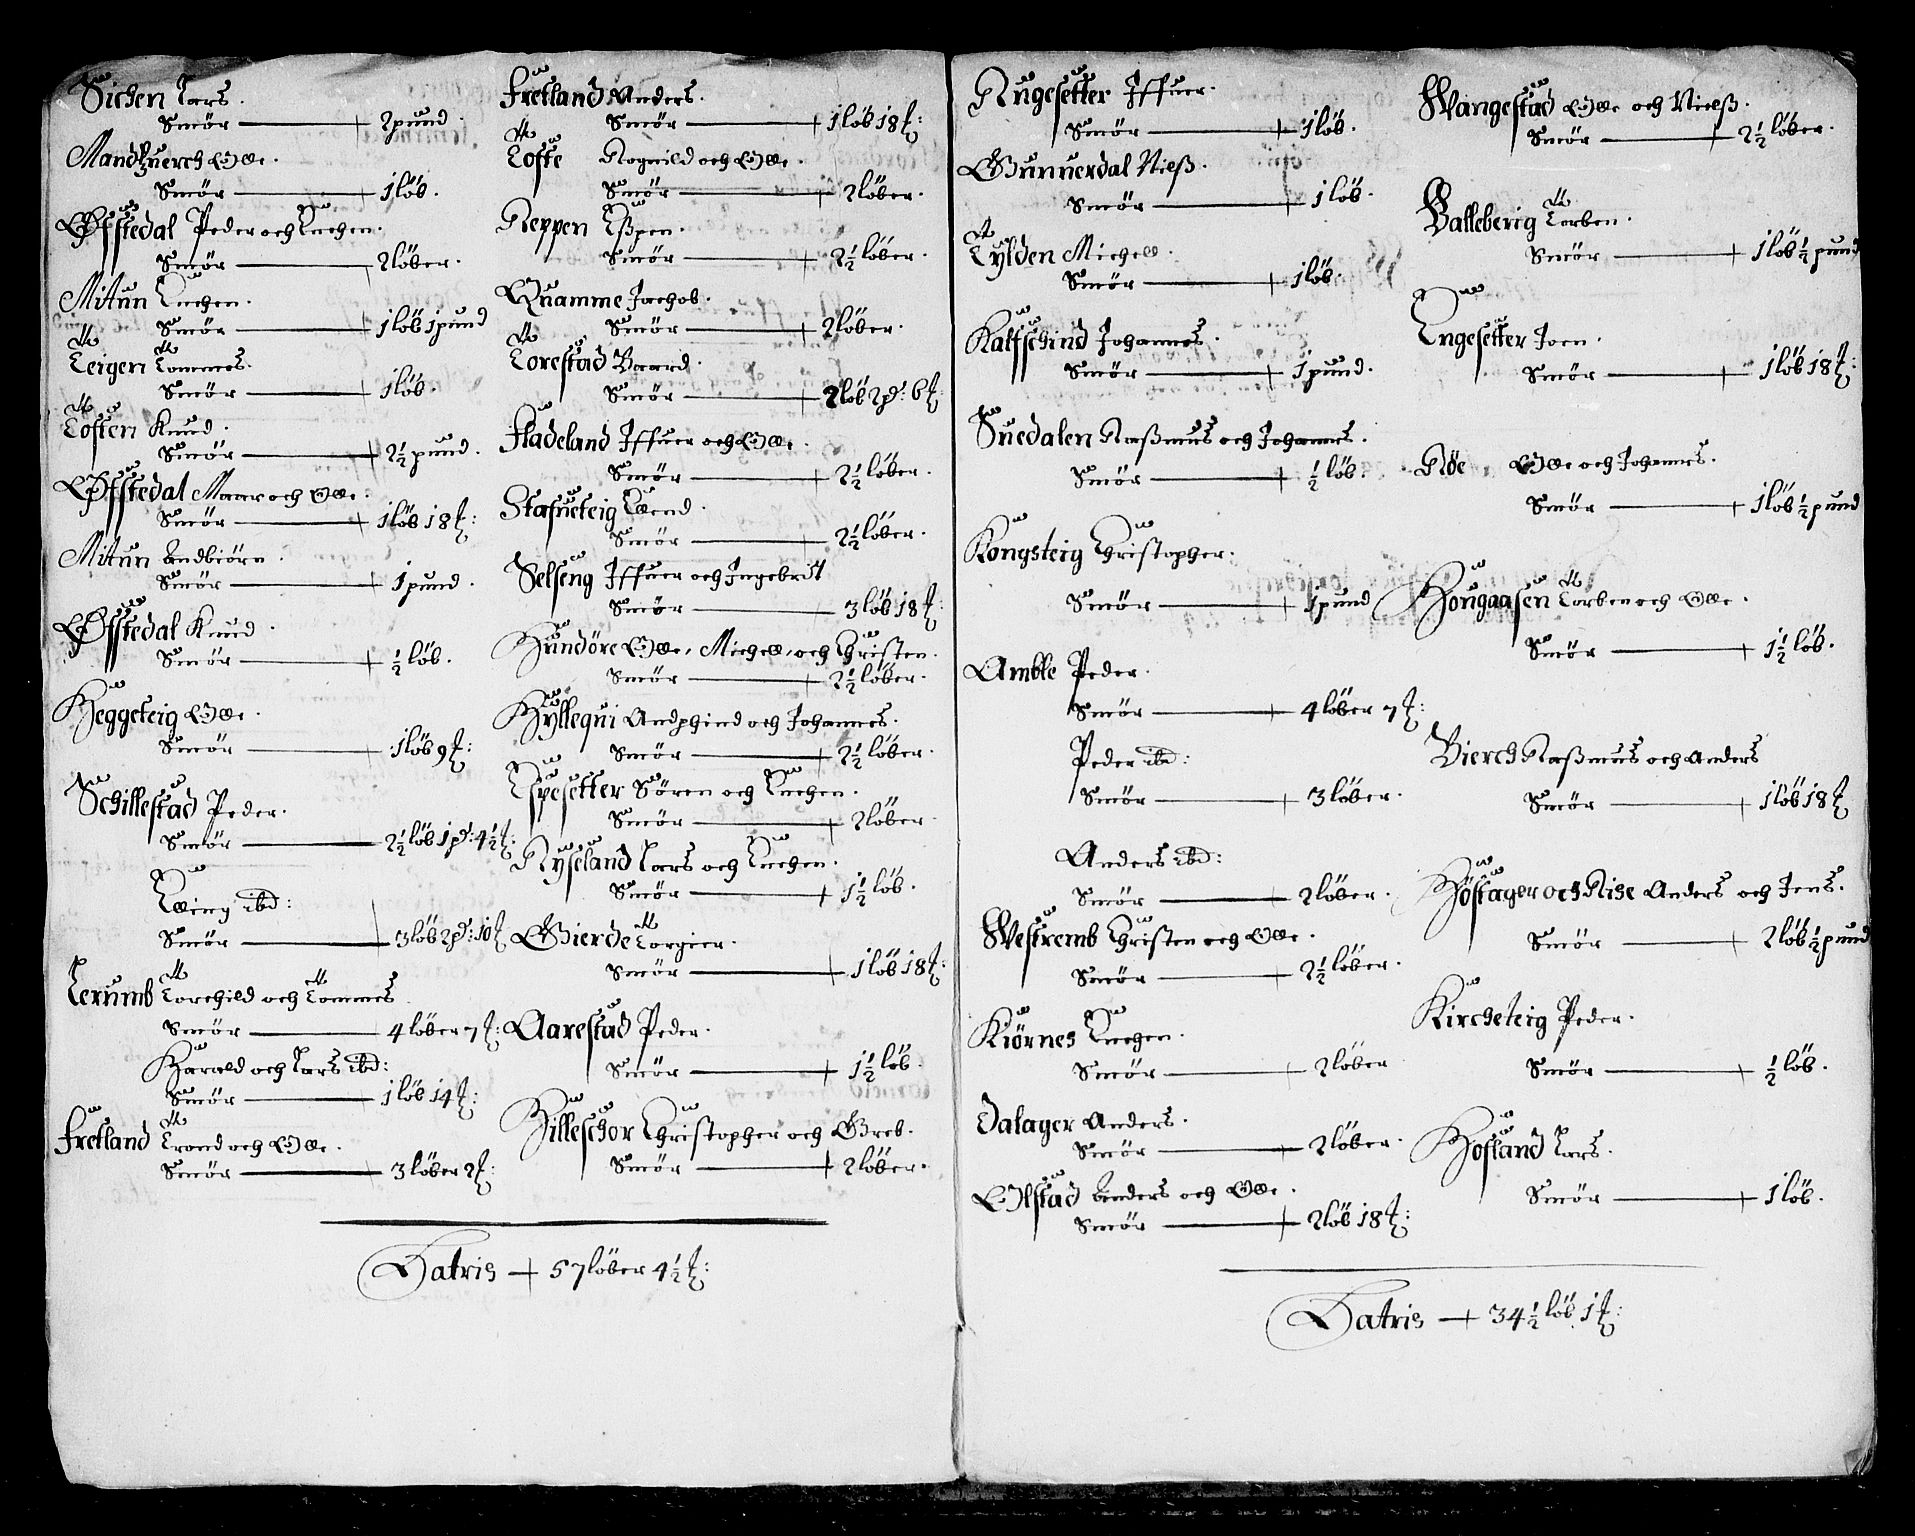 Sichen Lars.
Smör — 2 pund.
Mandzuerch Olle.
Smör — 1 löb.
Øffstedal Peder och Luchen.
Smör — 2 löber.
Mitun Luchen.
Smör — 1 löb 1 pund
Teigen Tommes.
Smör — 1 löb.
Toften Knud.
Smör — 2½ pund.
Øffstedal Maar och Olle:
Smör — 1 löb 18 ℔:
Mitun Andbiörn.
Smör — 1 pund.
Øffstedal Knud.
Smör — ½ löb.
Heggeteig Olle.
Smör — 1 löb 9 ℔:
Schillestad Peder.
Smör — 2½ löb 1 pd: 4½ ℔:
Elling ibd:
Smör — 3 löb 2 pd: 10 ℔
Lerumb Torchild och Tommes
Smör — 4 löber 7 ℔:
Harald och Lars ibd:
Smör — 1 löb 14 ℔:
Fretland Trond och Olle.
Smör — 3 löber 2 ℔:
Fretland Anders.
Smör — 1 löb 18 ℔:
Tofte Rognild och Olle.
Smör — 2 löber.
Reppen Eßpen.
Smör — 2½ löber.
Quamme Jachob.
Smör — 2 löber.
Torestad Baard.
Smör — 2 löb 2 pd: 6 ℔:
Fladeland Iffuer och Olle.
Smör — 2½ löber.
Stafueteig Ellend.
Smör — 2½ löber.
Selseng Iffuer och Ingebrdt
Smör — 3 löb 18 ℔:
Hundöre Olle, Michell, och Christen.
Smör — 2½ löber.
Hyllequi Andphind och Johannes.
Smör — 2½ löber.
Espesetter Sören och Luchen.
Smör — 2 löber.
Nyseland Lars och Luchen.
Smör — 1½ löb.
Gierde Torgier.
Smör — 1 löb 18 ℔:
Aarestad Peder.
Smör — 1½ löb.
Hilleschor Christopher och Greb.
Smör — 2 löber.
Latris — 57 löber 4½ ℔:
Rugesetter Iffuer.
Smör — 1 löb.
Gunuerdal Nielß.
Smör — 1 löb.
Tylden Michell.
Smör — 1 löb.
Kalfschind Johannes.
Smör — 1 pund.
Suedalen Raßmus och Johannes.
Smör — ½ löb.
Kongsteig Christopher.
Smör — 1 pund
Amble Peder.
Smör — 4 löber 7 ℔:
Peder ibd:
Smör — 3 löber.
Anders ibd:
Smör — 2 löber.
Westremb Christen och Olle.
Smör — 2½ löber.
Kiörnes Luchen.
Smör — 2 löber
Dalager Anders.
Smör — 2 löber.
Olstad Anders och Olle.
Smör — 2 löb 18 ℔:
Wangestad Olle och Nielß.
Smör — 2½ löber.
Balleberig Torben.
Smör — 1 löb ½ pund
Engesetter Joen.
Smör — 1 löb 18 ℔:
Röe Olle och Johannes.
Smör — 1 löb ½ pund
Hougaasen Torben och Olle.
Smör — 1½ löb.
Bierch Raßmus och Anders
Smör — 1 löb 18 ℔
Höstager och Rise Anders och Jens.
Smör — 2 löb ½ pund
Kircheteig Peder.
Smör — ½ löb.
Hofland Lars.
Smör — 1 löb.
Latris — 34½ löb 1 ℔: